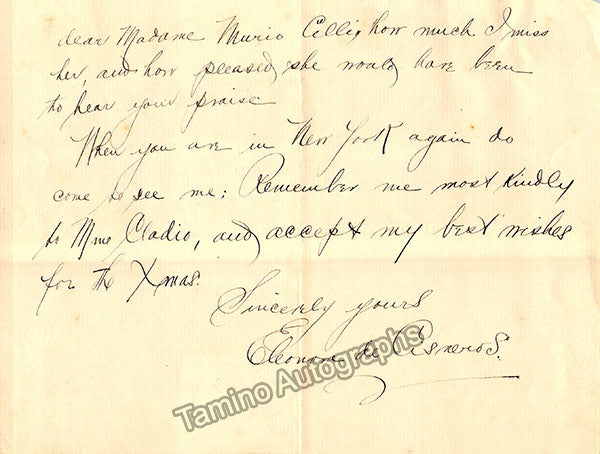 dear Madame Murio Celli, how much I miss
her, and how pleased she would have been
to hear your praise
When you are in New York again do
come to see me; Remember me most kindly
to Mme Cladio, and accept my best wishes
for the Xmas.
Sincerely yours
Eleonora de Cisneros.
Tamino Autographs